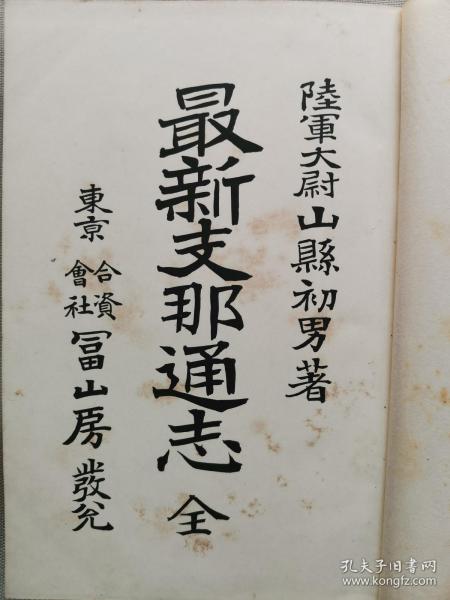 陸軍大尉山縣初男著
最新支那通志 全
東京 合資會社 冨山房發兌
孔夫子旧书网
www.kongfz.com